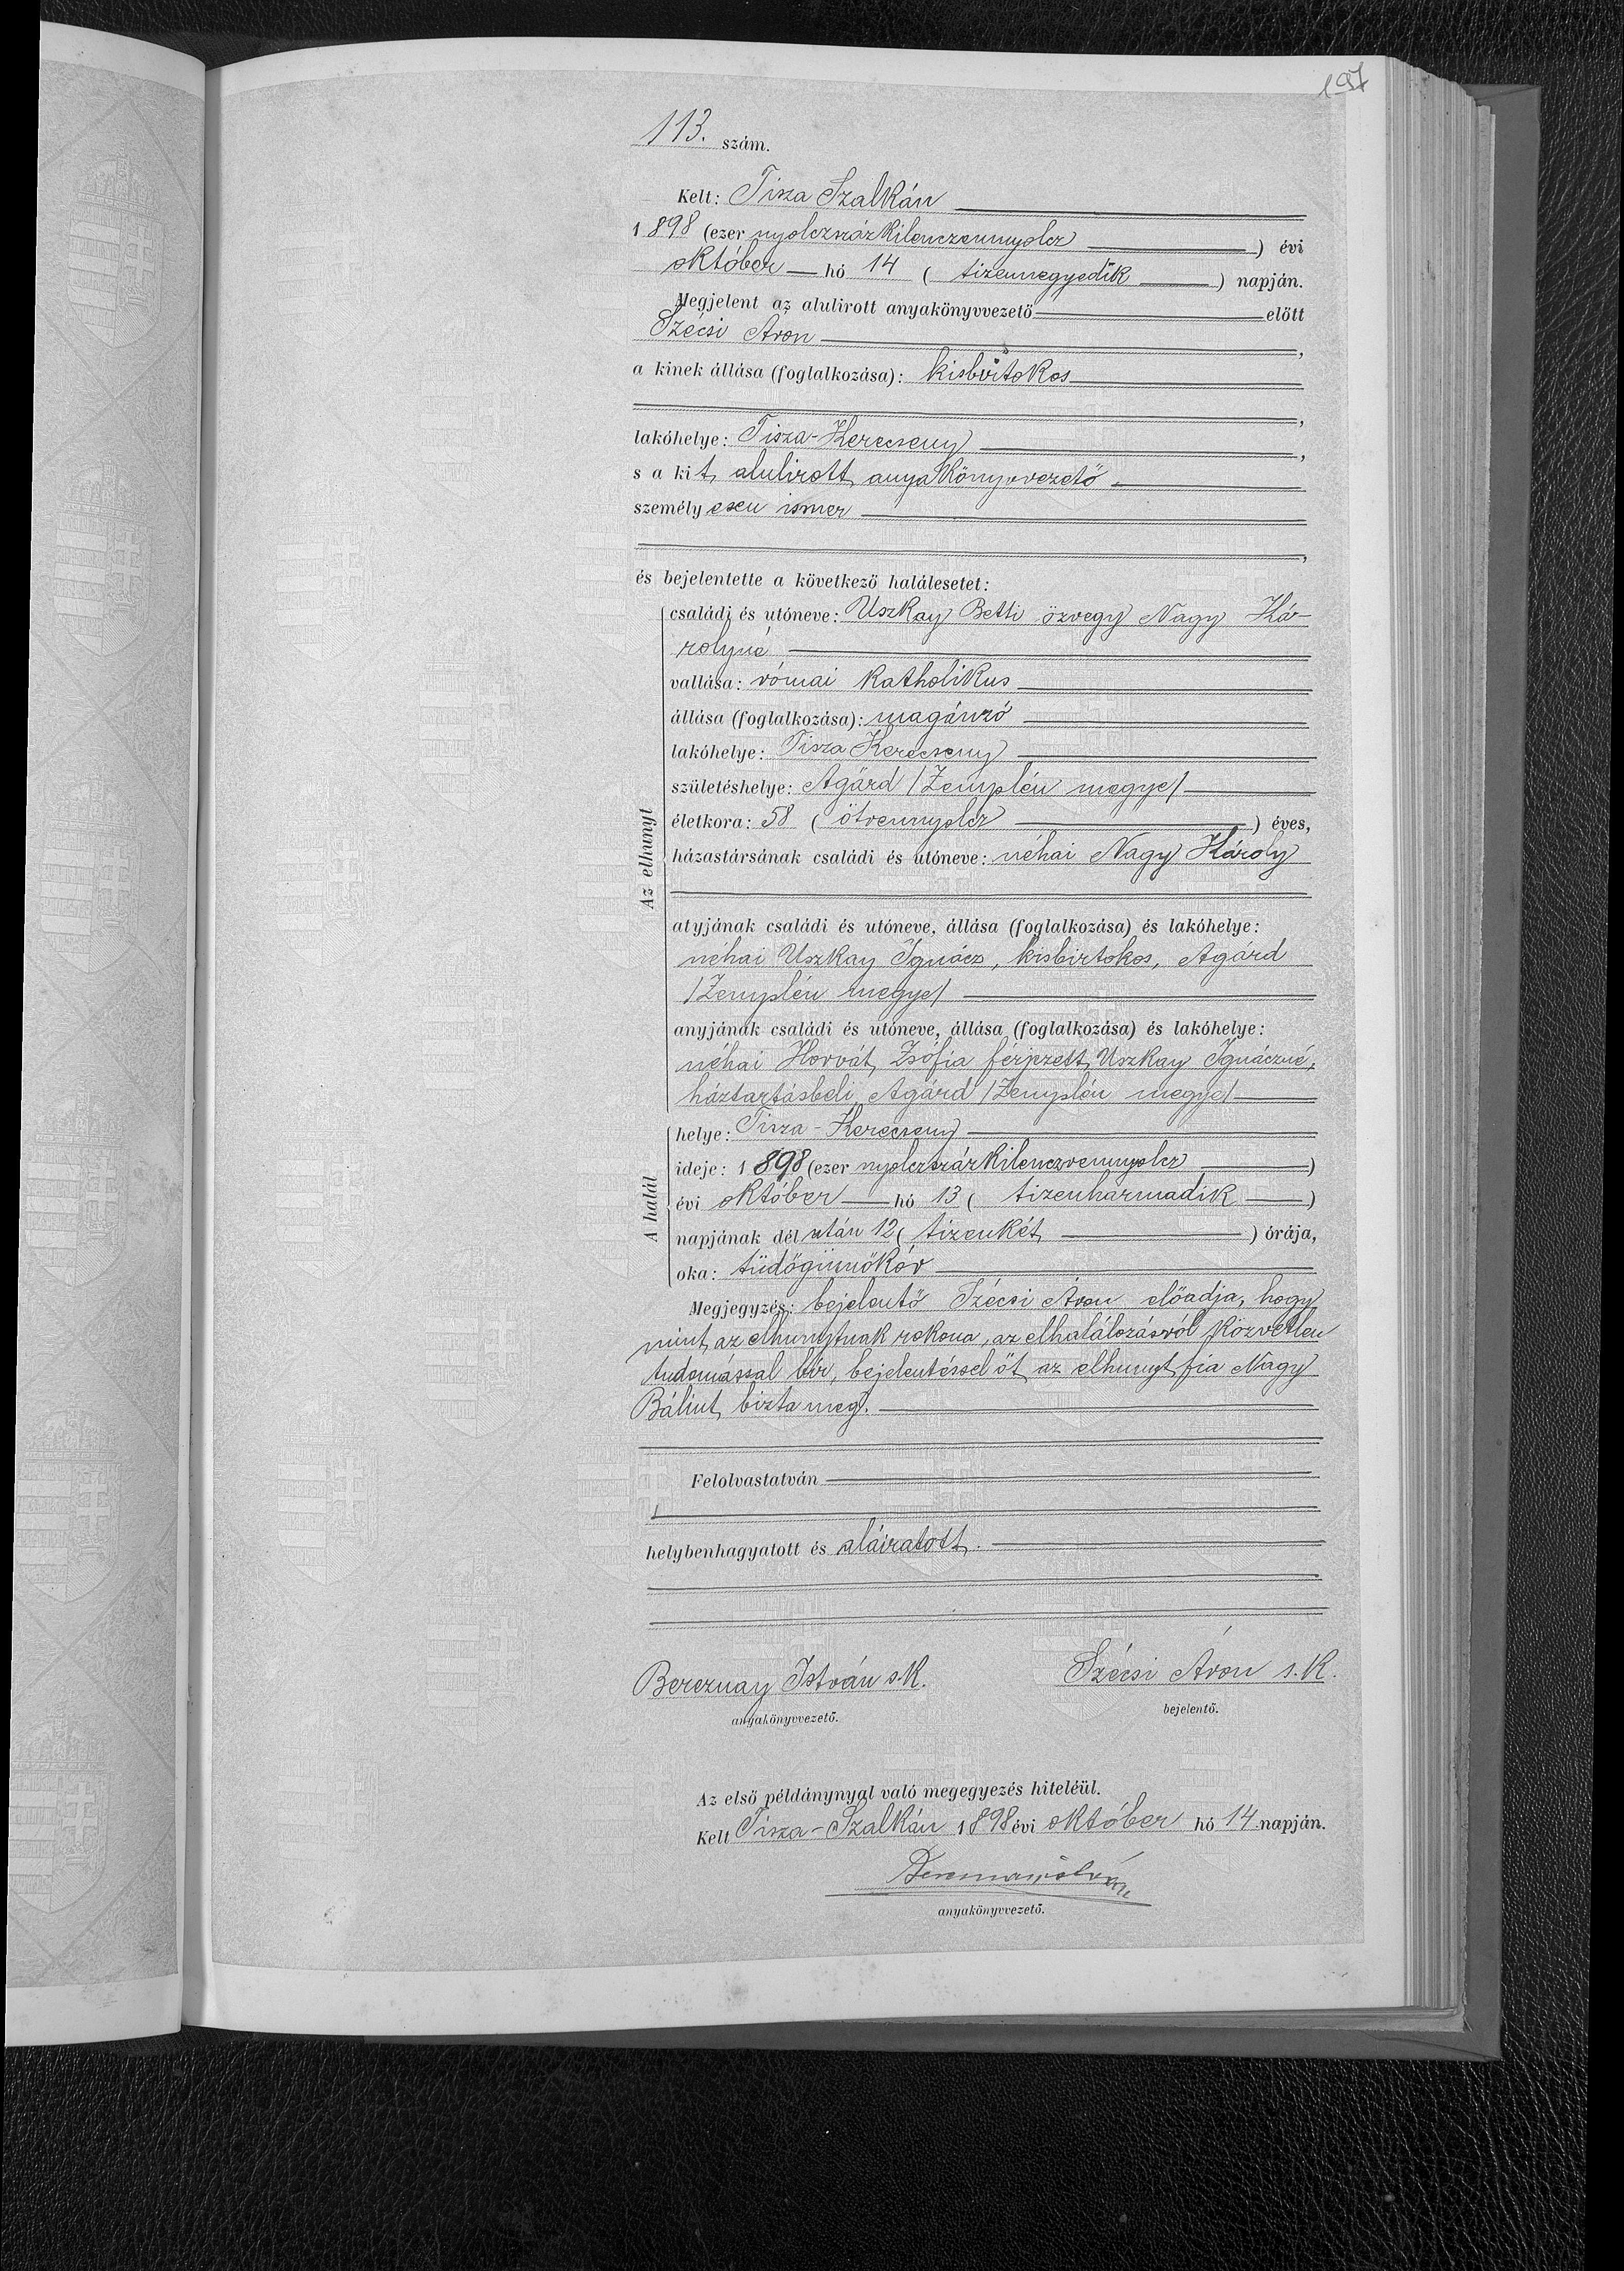 197
113. szám.
Kelt: Tisza Szalkán
1898 (ezer nyolczszázkilenczvennyolcz) évi
október hó 14 (tizennegyedik) napján.
Megjelent az alulirott anyakönyvvezető előtt
Szécsi Áron,
a kinek állása (foglalkozása): kisbirtokos
,
lakóhelye: Tisza-Kerecseny,
s a kit alulirott anyakönyvvezető
személyesen ismer
,
és bejelentette a következő halálesetet:
Az elhunyt
családi és utóneve: Uszkay Betti özvegy Nagy Ká-
rolyné
vallása: római katholikus
állása (foglalkozása): magánzó
lakóhelye: Tisza Kerecseny
születéshelye: Agárd /Zemplén megye/
életkora: 58 (ötvennyolcz) éves,
házastársának családi és utóneve: néhai Nagy Károly
atyjának családi és utóneve, állása (foglalkozása) és lakóhelye:
néhai Uszkay Ignácz, kisbirtokos, Agárd
/Zemplén megye/
anyjának családi és utóneve, állása (foglalkozása) és lakóhelye:
néhai Horvát Zsófia férjezett Uszkay Ignáczné,
háztartásbeli Agárd /Zemplén megye/
A halál
helye: Tisza-Kerecseny
ideje: 1898 (ezer nyolczszázkilenczvennyolcz)
évi október hó 13 (tizenharmadik)
napjának dél után 12 (tizenkét) órája,
oka: tüdőgümőkór
Megjegyzés: bejelentő Szécsi Áron előadja, hogy
mint az elhunytnak rokona, az elhalálozásról közvetlen
tudomással bir, bejelentéssel őt az elhunyt fia Nagy
Bálint bizta meg.
Felolvastatván
helybenhagyatott és aláiratott.
Bereznay István s.k.
anyakönyvvezető.
Szécsi Áron s.k.
bejelentő.
Az első példánynyal való megegyezés hiteléül.
Kelt Tisza-Szalkán 1898 évi október hó 14 napján.
Bereznay István
anyakönyvvezető.